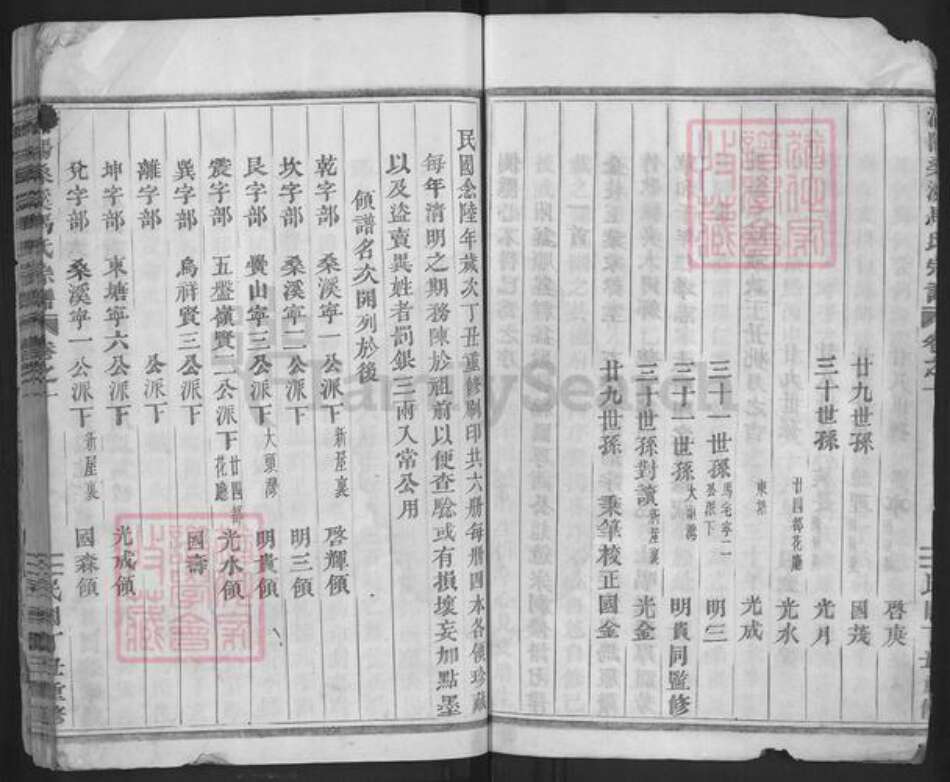 啓庚
廿九世孫 國茂
三十世孫 光月
廿四都花廳 光水
東塘 光成
三十一世孫 馬宅寧一公派下 明三
三十一世孫 大頭灣 明貴同監修
三十世孫對讀 新屋裏 光金
廿九世孫 秉筆校正國金
民國念陸年歲次丁丑重修刷印共六册每册四本各領珍藏
每年清明之期務陳於祖前以便查驗或有損壞妄加點墨
以及盜賣異姓者罰銀三兩入常公用
領譜名次開列於後
乾字部 桑溪寧一公派下 新屋裏 啓輝領
坎字部 桑溪寧二公派下 明三領
艮字部 覺山寧三公派下 大頭灣 明貴領
震字部 五盤嶺賢二公派下 廿四都花廳 光水領
巽字部 烏祥賢三公派下 國壽
離字部 公派下
坤字部 東塘寧六公派下 光成領
兌字部 桑溪寧一公派下 新屋裏 國森領
桑溪馬氏宗譜 卷之一 民國丁丑重修
FamilySearch